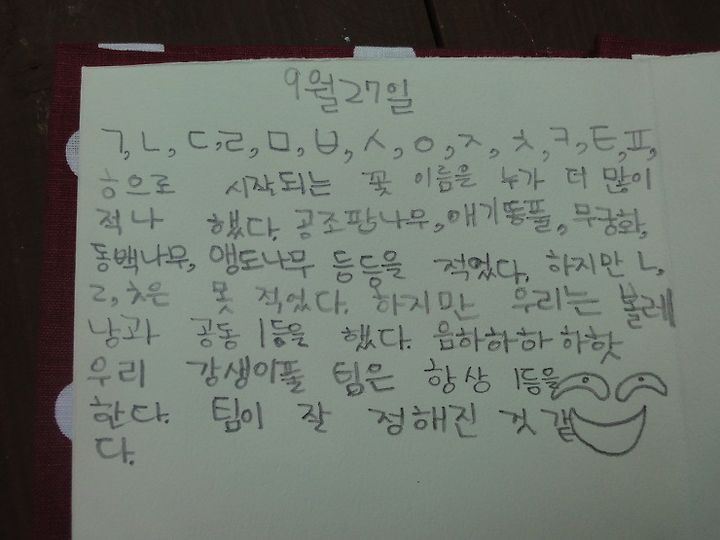 9월27일
ㄱ,ㄴ,ㄷ,ㄹ,ㅁ,ㅂ,ㅅ,ㅇ,ㅈ,ㅊ,ㅋ,ㅌ,ㅍ,
ㅎ으로 시작되는 꽃 이름을 누가 더 많이
적나 했다. 공조팝나무, 애기똥풀, 무궁화,
동백나무, 앵도나무 등등을 적었다. 하지만 ㄴ,
ㄹ,ㅊ은 못 적었다. 하지만 우리는 볼레
낭과 공동 1등을 했다. 음하하하 하핫
우리 강생이풀 팀은 항상 1등을
한다. 팀이 잘 정해진 것 같
다.